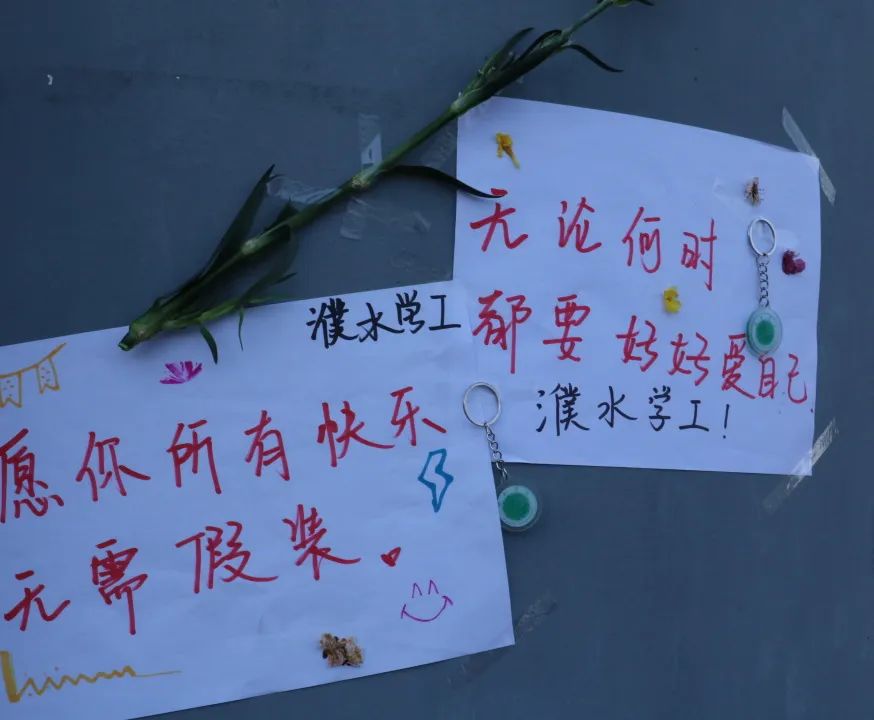 濮水学工
愿你所有快乐
无需假装
无论何时
都要好好爱自己
濮水学工!